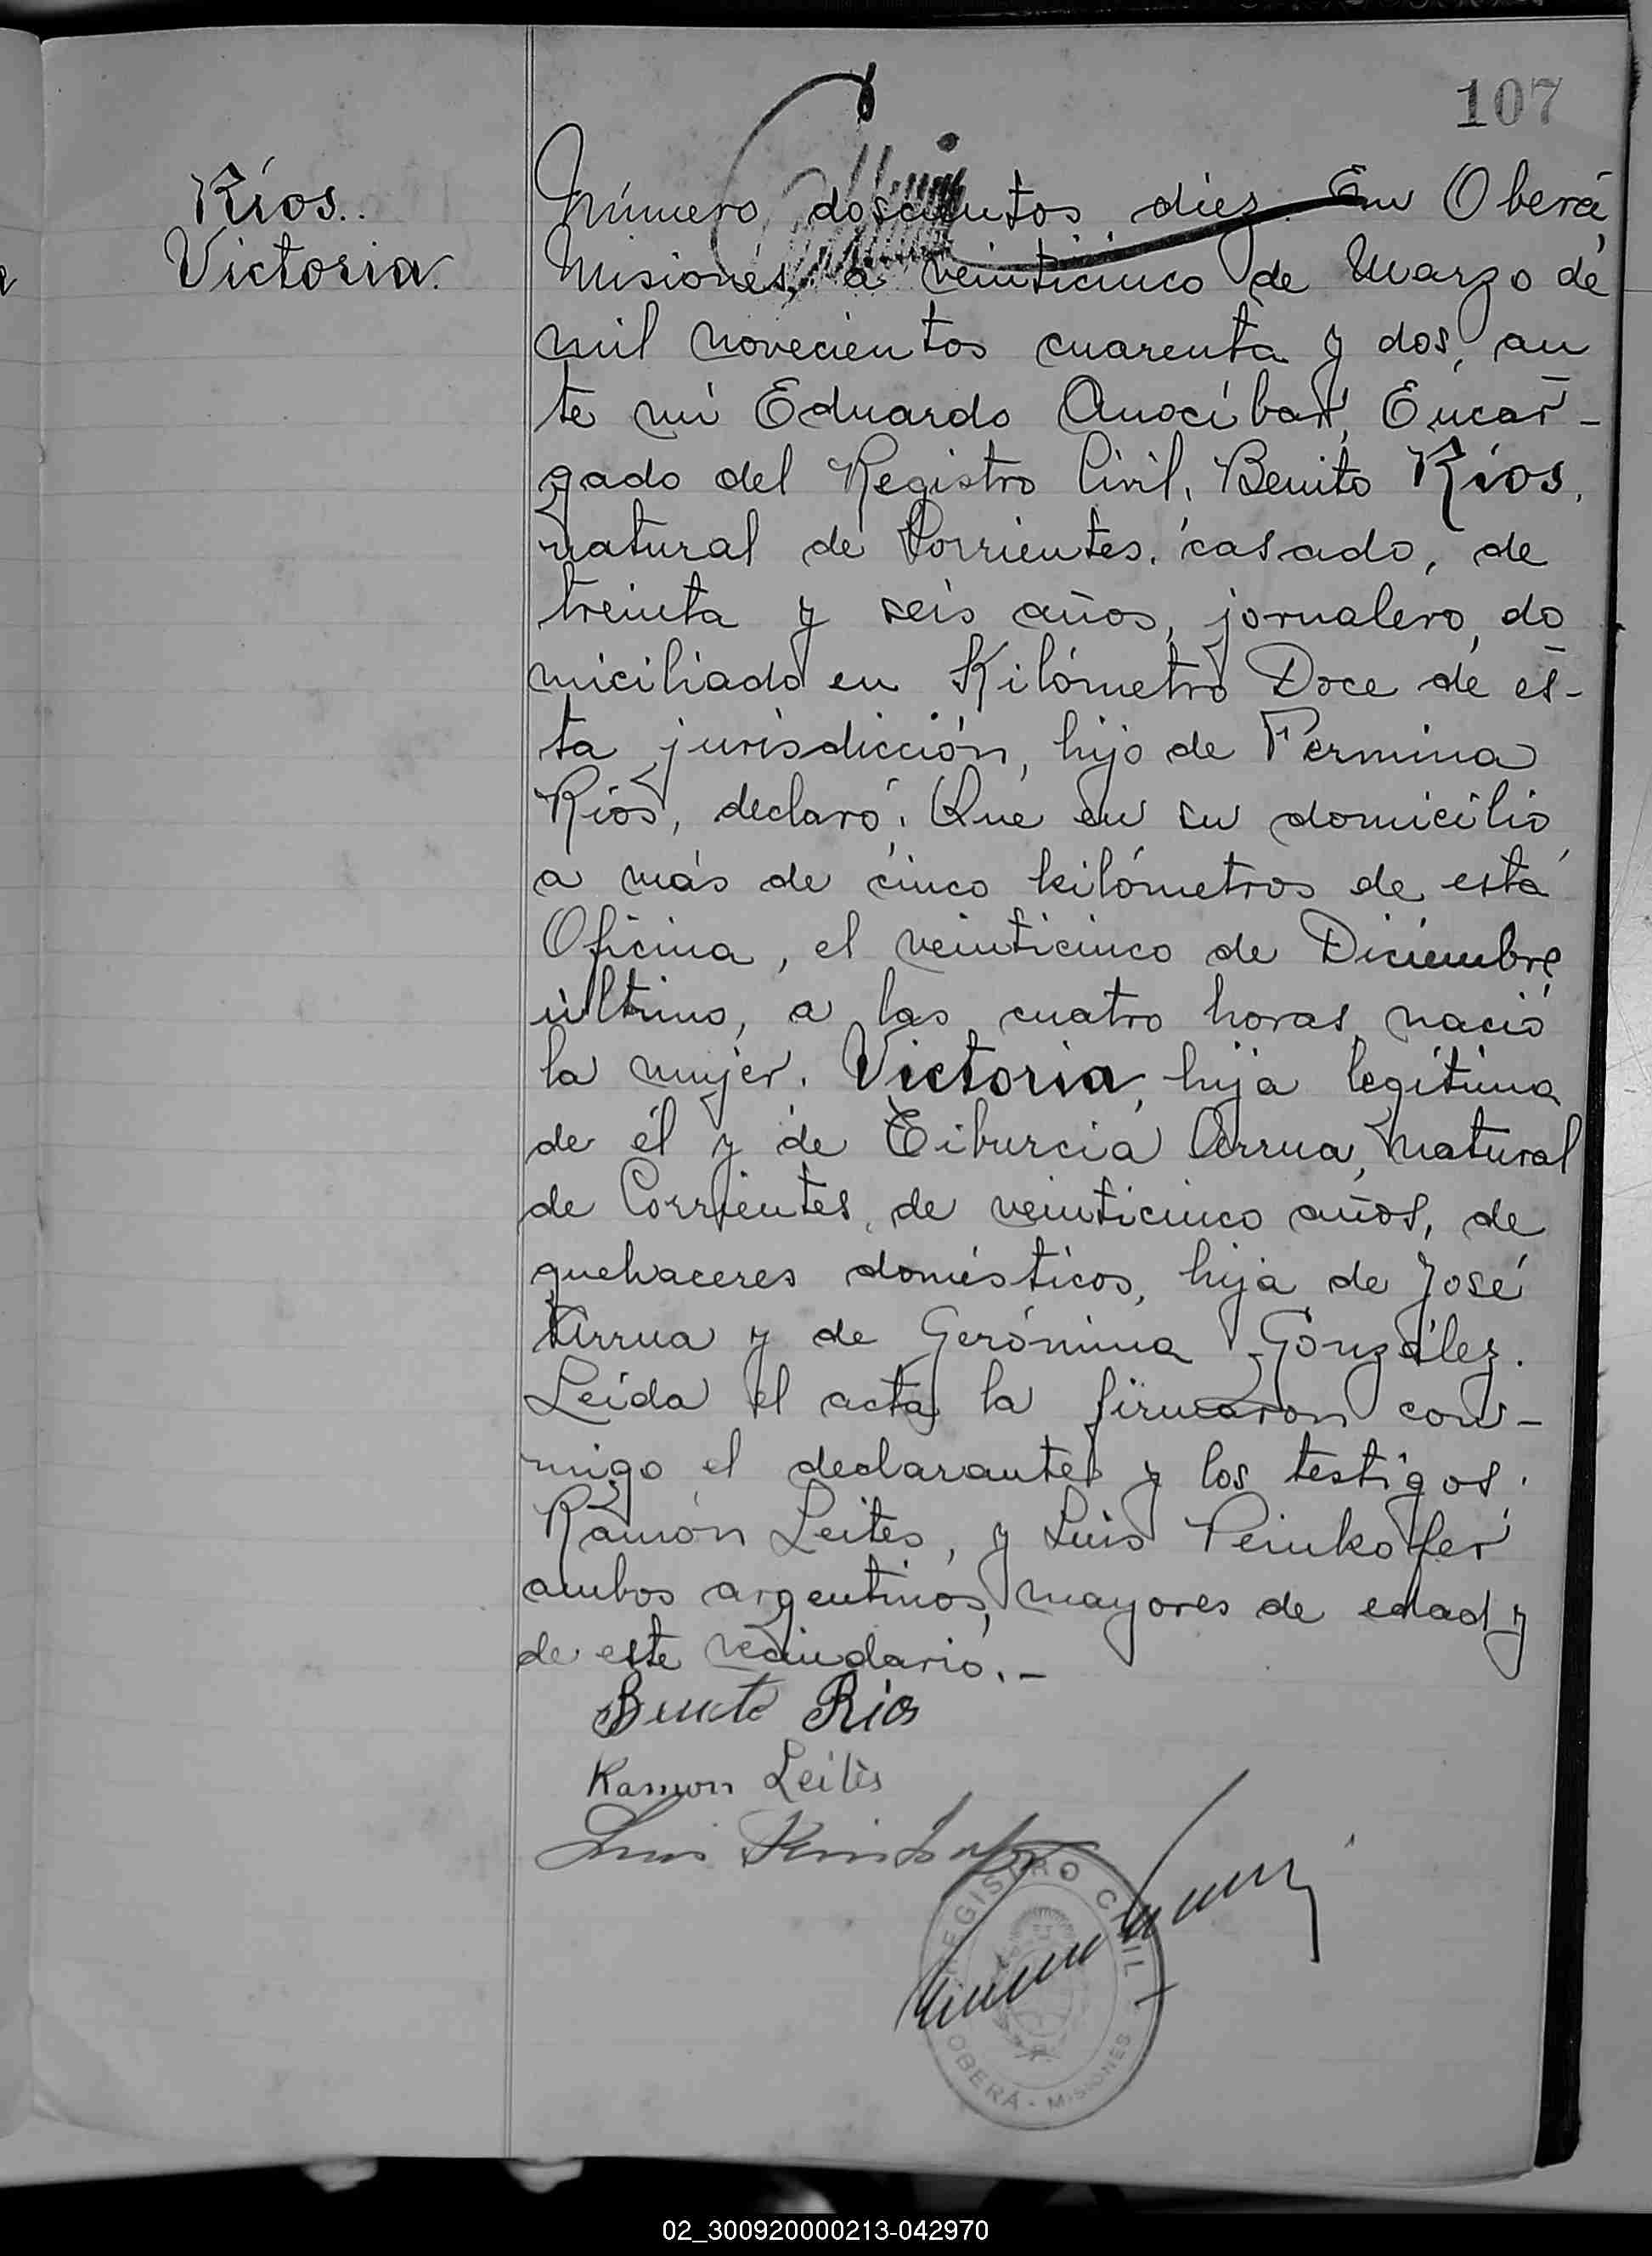 107
Ríos.
Victoria.
Número doscientos diez. En Oberá,
Misiones, a veinticinco de Marzo de
mil novecientos cuarenta y dos, an
te mí Eduardo Anocíbar, Encar-
gado del Registro Civil, Benito Ríos,
natural de Corrientes, casado, de
treinta y seis años, jornalero, do
miciliado en Kilómetro Doce de es-
ta jurisdicción, hijo de Fermina
Ríos, declaró: Que en su domicilio
a más de cinco kilómetros de esta
Oficina, el veinticinco de Diciembre
último, a las cuatro horas, nació
la mujer. Victoria, hija legítima
de él y de Tiburcia Arrua, natural
de Corrientes, de veinticinco años, de
quehaceres domésticos, hija de José
Arrua y de Gerónima González.
Leída el acta la firmaron con-
migo el declarante y los testigos:
Ramón Leites, y Luis Peinkofer
ambos argentinos, mayores de edad y
de este vecindario.-
Benito Ríos
Ramon Leites
Luis
REGISTRO CIVIL
OBERÁ - MISIONES
02_300920000213-042970